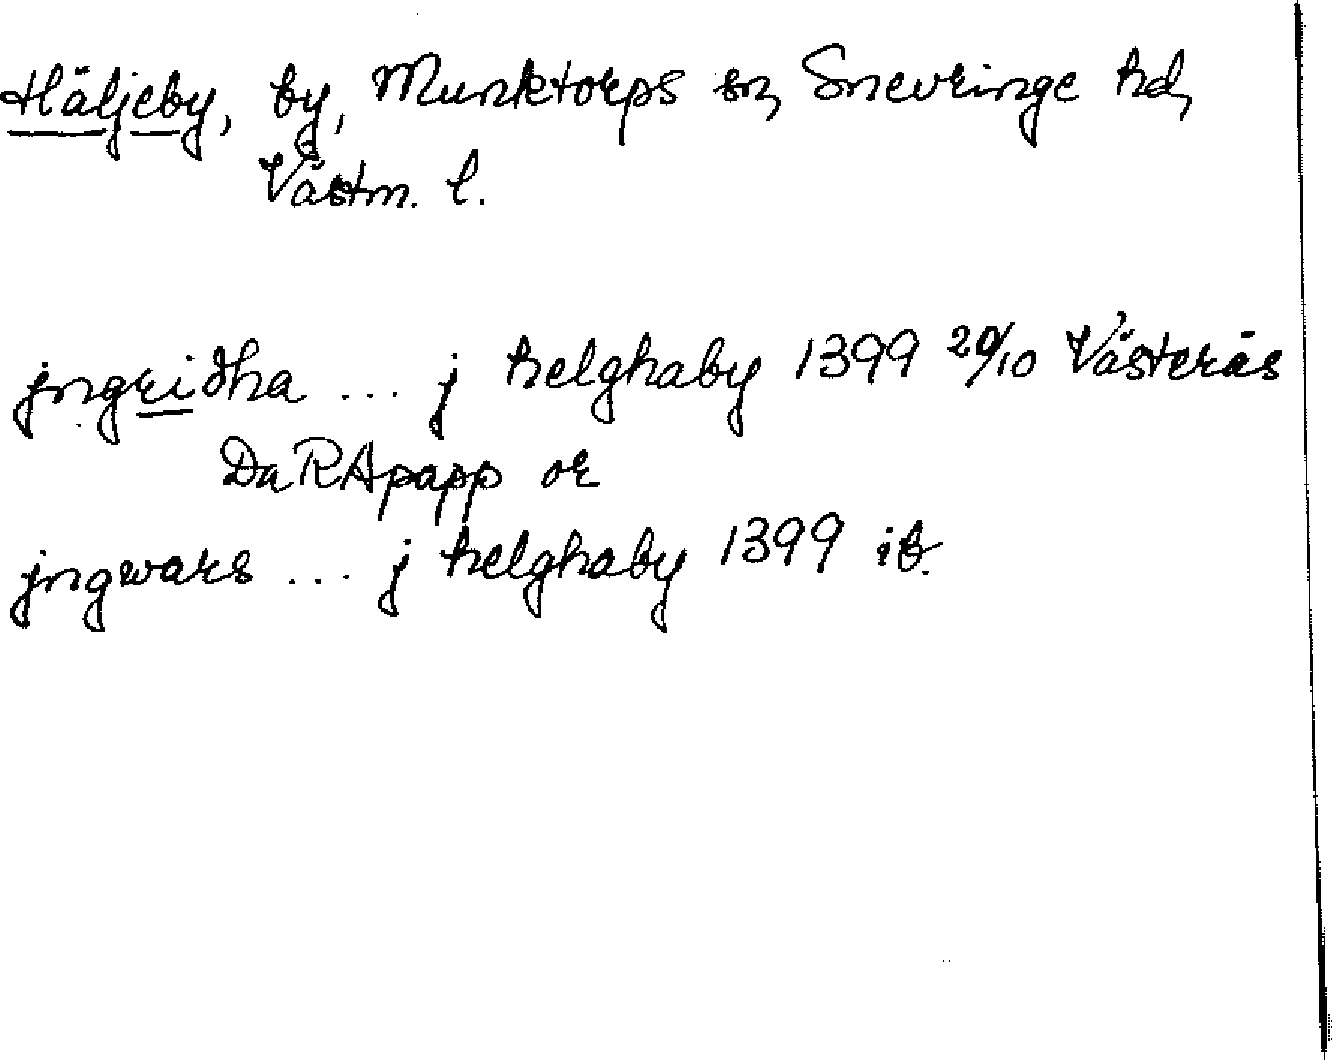 Häljeby, by, Munktorps sn, Snevringe hd,
Västm. l.
jngridha ... j helghaby 1399 20/10 Västerås
Da RA papp or
jngwars ... j helghaby 1399 ib.